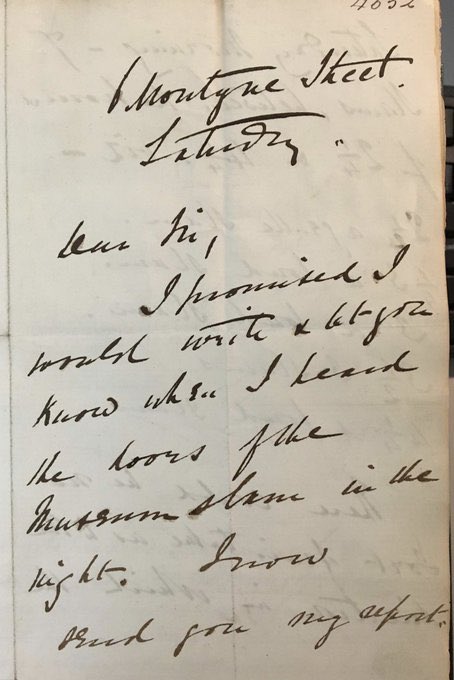 6 Montague Street.
Saturday.
Dear Sir,
I promised I
would write & let you
know when I heard
the doors of the
Museum slam in the
night. I now
send you my report.